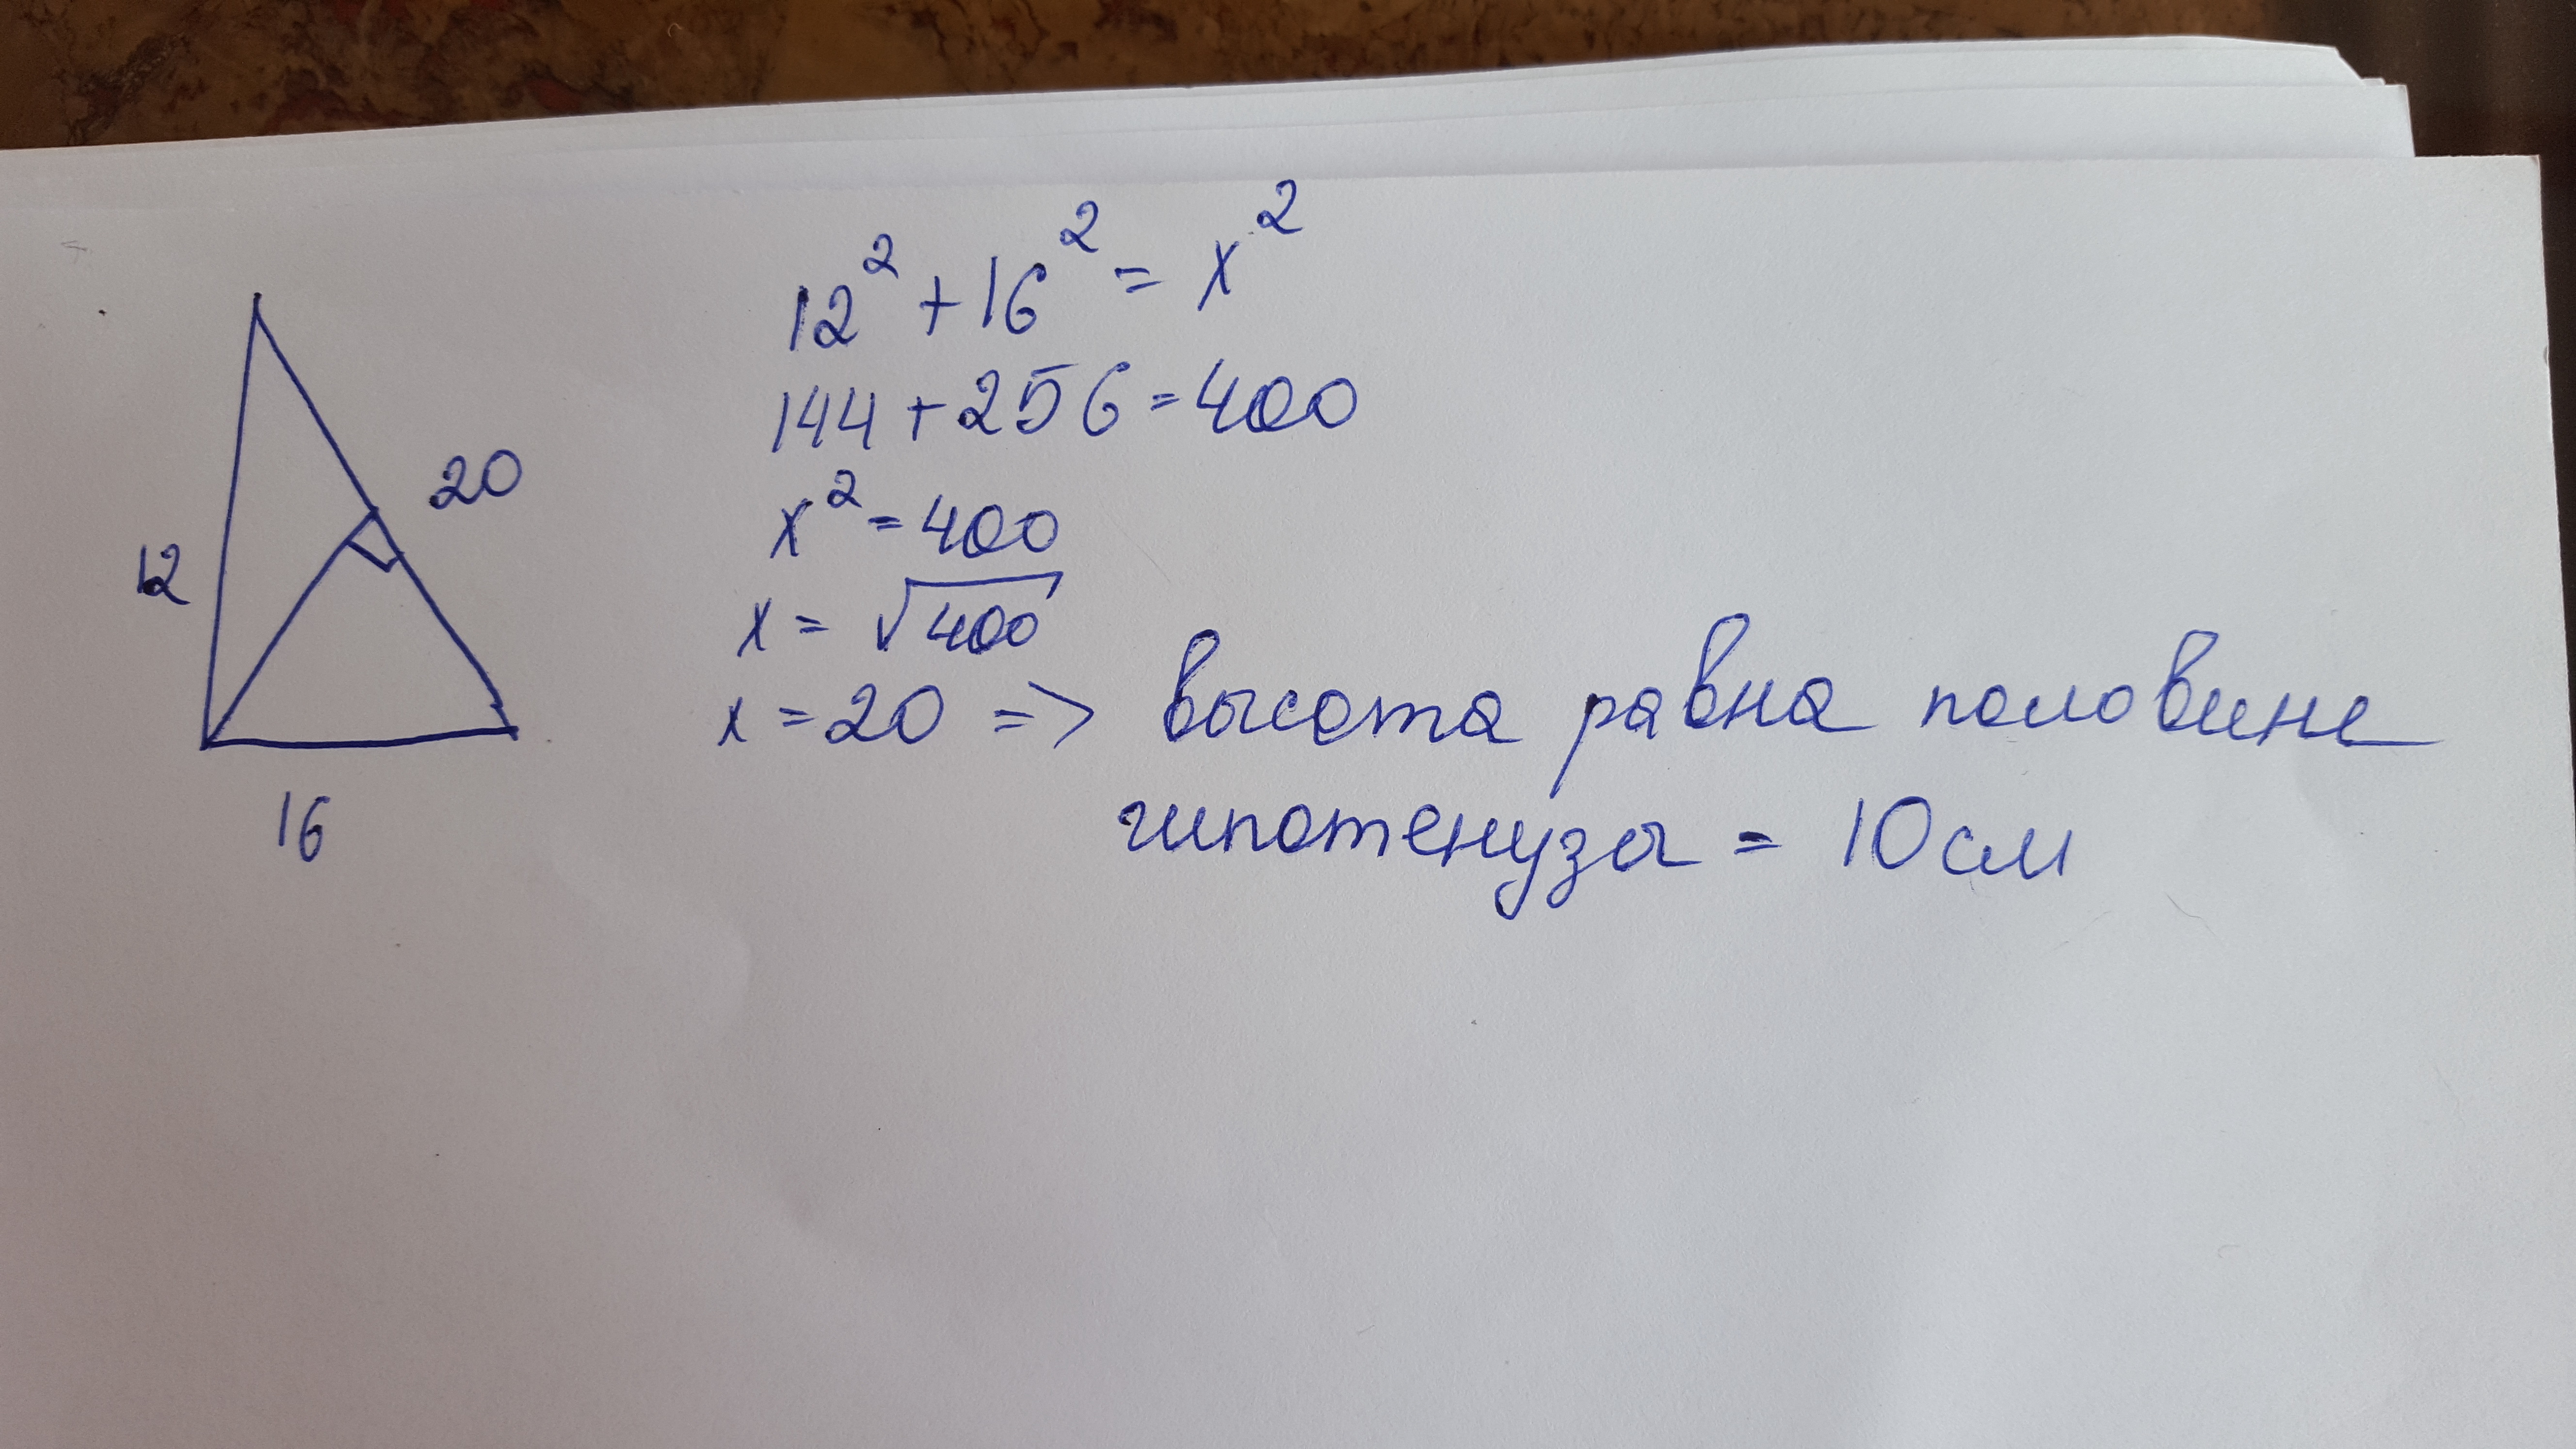 12² + 16² = x²
144 + 256 = 400
x² = 400
x = √400
x = 20 => высота равна половине
гипотенузы = 10 см
12
20
16